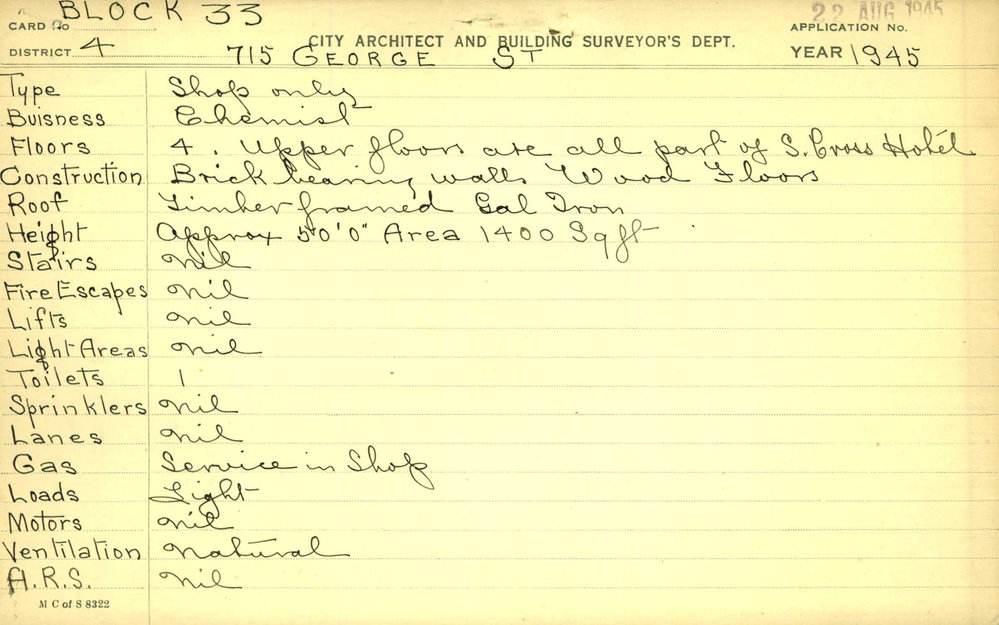 BLOCK 33 22 AUG 1945
CARD No APPLICATION No.
CITY ARCHITECT AND BUILDING SURVEYOR'S DEPT.
DISTRICT 4 715 GEORGE ST YEAR 1945
Type Shop only
Buisness Chemist
Floors 4. Upper floors are all part of S. Cross Hotel
Construction Brick bearing walls Wood Floors
Roof Timber framed Gal Iron
Height Approx 50'0" Area 1400 Sq ft
Stairs Nil
Fire Escapes Nil
Lifts Nil
Light Areas Nil
Toilets 1
Sprinklers Nil
Lanes Nil
Gas Service in Shop
Loads Light
Motors Nil
Ventilation Natural
A.R.S. Nil
M C of S 8322